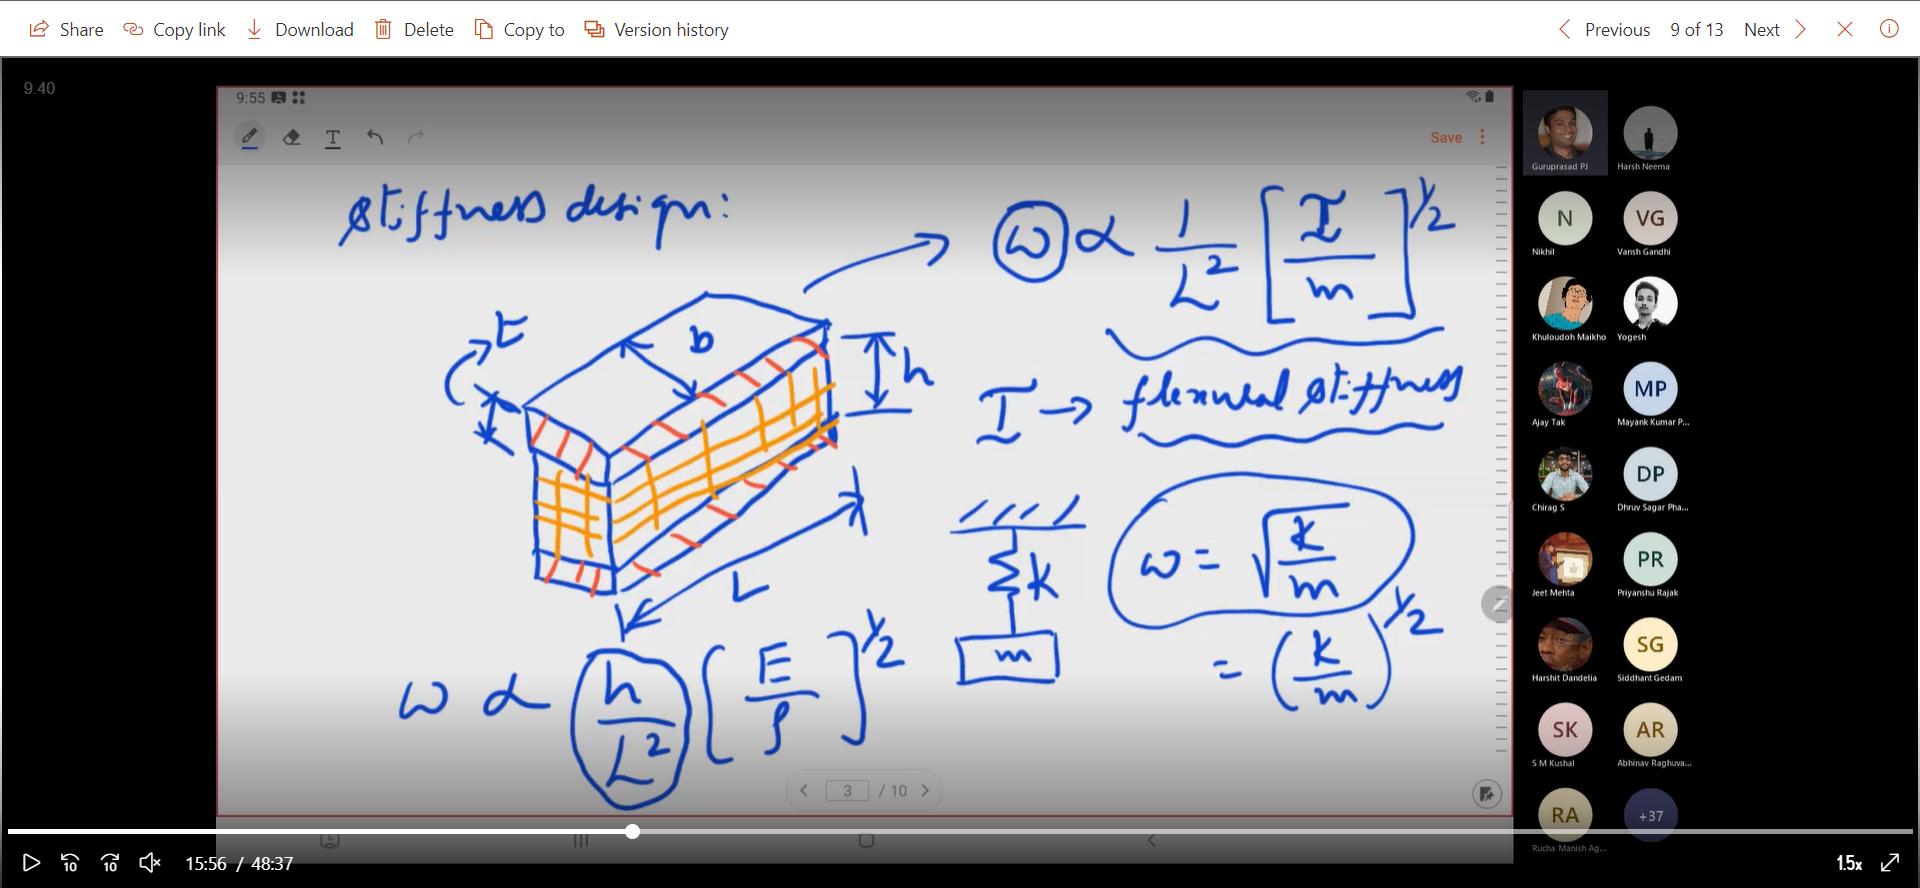 Share Copy link Download Delete Copy to Version history Previous 9 of 13 Next
9.40
9:55
T Save
stiffness design:
ω ∝ 1/L² [I/m]^1/2
t
b
h
L
I → flexural stiffness
k
m
ω = √(k/m)
= (k/m)^1/2
ω ∝ h/L² [E/ρ]^1/2
3 / 10
Guruprasad PJ
Harsh Neema
N
Nikhil
VG
Vansh Gandhi
Khuloudoh Maikho
Yogesh
Ajay Tak
MP
Mayank Kumar P...
Chirag S
DP
Dhruv Sagar Pha...
Jeet Mehta
PR
Priyanshu Rajak
Harshit Dandelia
SG
Siddhant Gedam
SK
S M Kushal
AR
Abhinav Raghuva...
RA
Rucha Manish Ag...
+37
10 10 15:56 / 48:37 1.5x